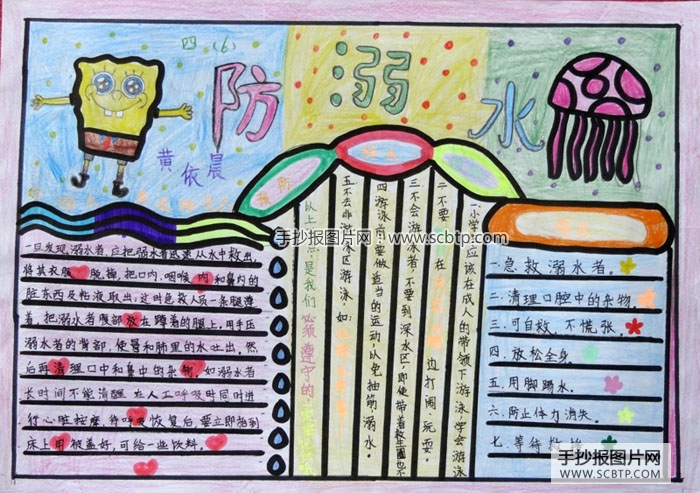 四（6）
防溺水
黄依晨
一旦发现溺水者,应把溺水者迅速从水中救出,
将其衣服脱掉,把口内、咽喉内和鼻内的
脏东西及粘液取出,这时急救人员一条腿蹲
着,把溺水者腹部放在蹲着的腿上,用手压
溺水者的背部,使胃和肺里的水吐出,然
后再清理口中和鼻中的杂物,如溺水者
长时间不能清醒,在人工呼吸时同时进
行心脏按摩,待呼吸恢复后要立即抱到
床上用被盖好,可给一些饮料。
一小学应该在成人的带领下游泳学会游泳
二不要在边打闹玩耍。
三不会游泳者,不要到深水区,即使带着救生圈也不
四游泳前要做适当的运动,以免抽筋溺水。
五不去非游泳区游泳,如:
以上总是我们必须遵守的
一.急救溺水者。
二.清理口腔中的杂物
三.可自救,不慌张。
四.放松全身。
五.用脚踢水。
六.防止体力消失。
七.等待救援
手抄报图片网-www.scbtp.com
手抄报图片网
WWW.SCBTP.COM